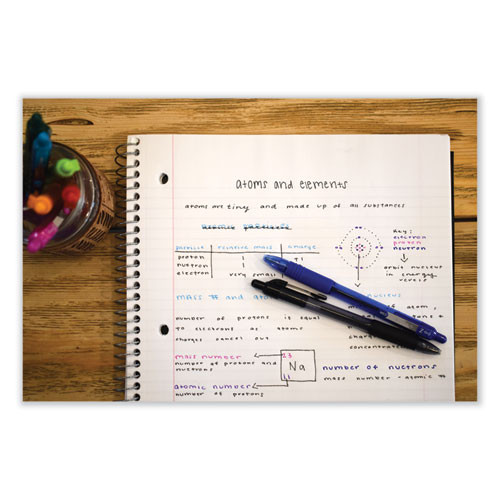 atoms and elements
atoms are tiny and made up of all substances
particle relative mass charge
proton 1 +1
nuetron 1
electron very small
Key:
electron
proton
nuetron
orbit nucleus
in energy
levels
mass # and
nucleus
number of protons is equal
to electrons as atomic
charges cancel out
atom,
concentrat
mass number
number of protons and
nuetrons
23
Na
11
atomic number
number of protons
number of nuetrons
mass number - atomic #